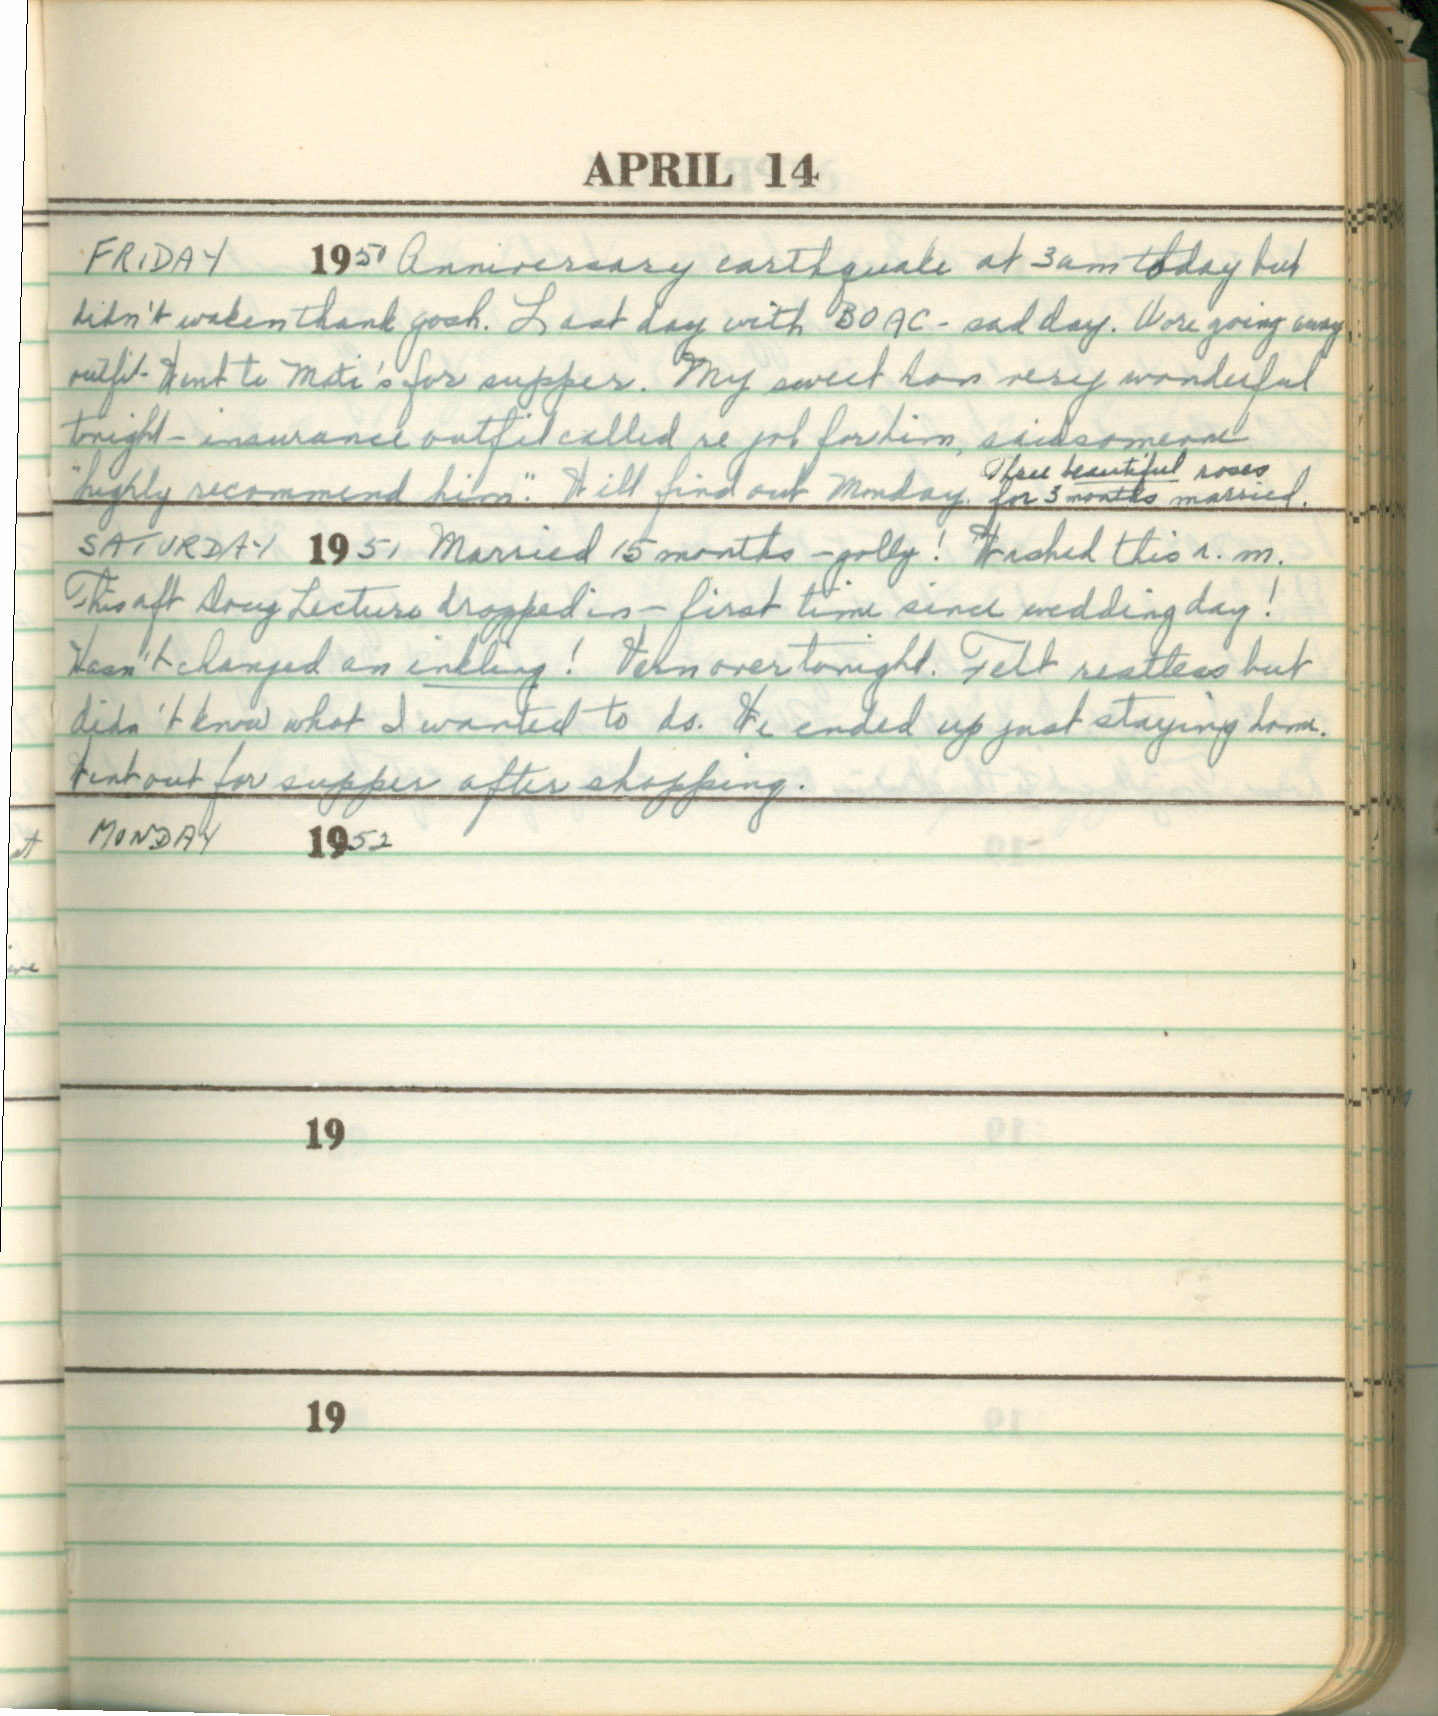 APRIL 14
FRIDAY 1950 Anniversary earthquake at 3am today but
didn't waken thank gosh. Last day with BOAC - sad day. Wore going away
outfit - Went to Moti's for supper. My sweet hon very wonderful
tonight - insurance outfit called re job for him, said someone
"highly recommend him". Will find out Monday. Three beautiful roses
for 3 months married.
SATURDAY 1951 Married 15 months - golly! Washed this a.m.
This aft Doug Lecture dropped in - first time since wedding day!
Hasn't changed an inkling! Vern over tonight. Felt restless but
didn't know what I wanted to do. We ended up just staying home.
Went out for supper after shopping.
MONDAY 1952
19
19